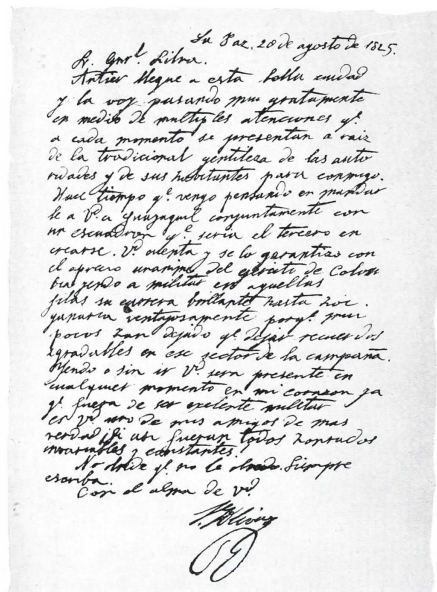 La Paz, 20 de agosto de 1825.
Sr. Gnrl. Silva.
Antier llegue a esta bella ciudad
y la voy pasando muy gratamente
en medio de multiples atenciones qe.
a cada momento se presentan a raiz
de la tradicional gentileza de las auto
ridades y de sus habitantes para conmigo.
Hace tiempo qe. vengo pensando en mandar
le a Vd. a Guayaquil conjuntamente con
un escuadron qe. seria el tercero en
crearse. Vd. cuenta y se lo garantizo con
el aprecio unanime del ejército de Colom
bia yendo a militar en aquellas
filas su carrera brillante hasta hoi.
ganaria ventajosamente porqe. muy
pocos han dejado qe. dejar recuerdos
agradables en ese sector de la campaña.
Yendo o sin ir Vd. sera presente en
cualquier momento en mi corazon ya
qe. fuera de ser exelente militar
es Vd. uno de mis amigos de mas
verdad ¡Si asi fueran todos honrados
invariables y constantes.
No olvide qe. no le olvido. Siempre
escriba.
Con el alma de Vd.
S. Bolívar